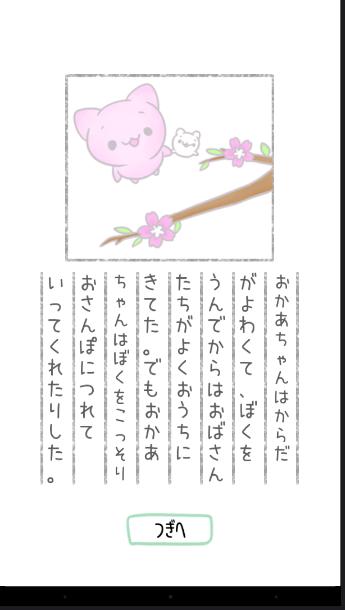 おかあちゃんはからだ
がよわくて、ぼくを
うんでからはおばさん
たちがよくおうちに
きてた。でもおかあ
ちゃんはぼくをこっそり
おさんぽにつれて
いってくれたりした。
つぎへ